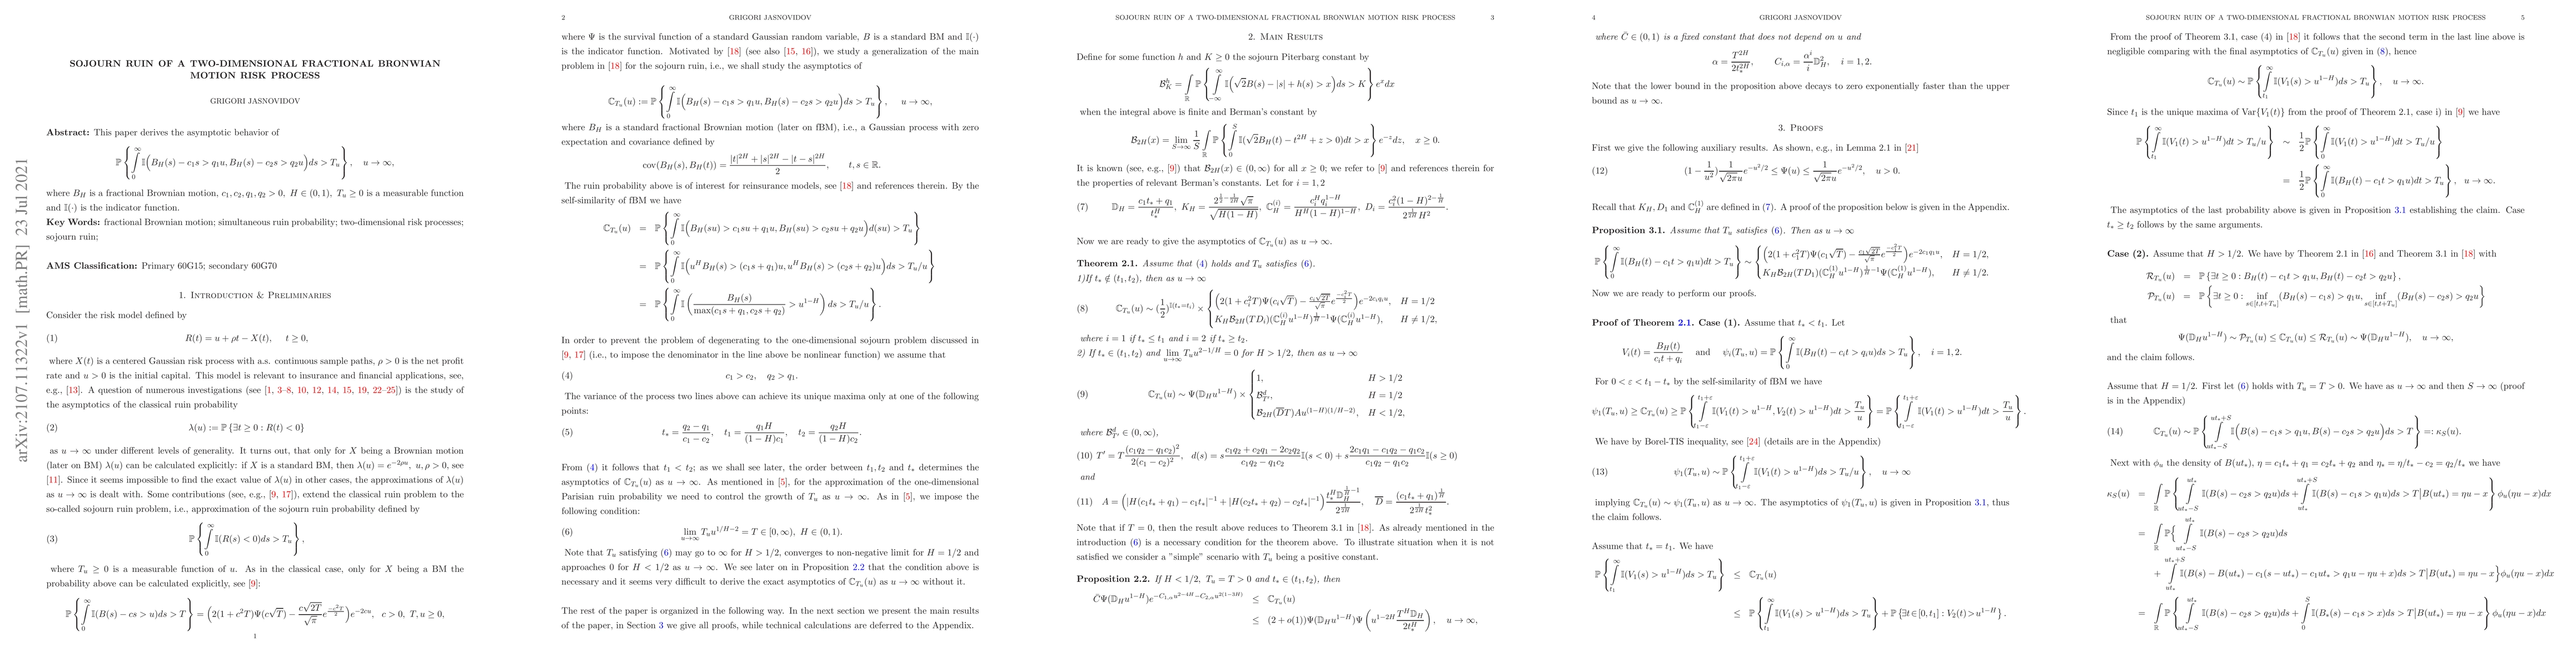 arXiv:2107.11322v1 [math.PR] 23 Jul 2021
SOJOURN RUIN OF A TWO-DIMENSIONAL FRACTIONAL BRONWIAN
MOTION RISK PROCESS
GRIGORI JASNOVIDOV
Abstract: This paper derives the asymptotic behavior of
ℙ{∫_0^∞ 𝕀(B_H(s) − c_1s > q_1u, B_H(s) − c_2s > q_2u)ds > T_u}, u → ∞,
where B_H is a fractional Brownian motion, c_1, c_2, q_1, q_2 > 0, H ∈ (0, 1), T_u ≥ 0 is a measurable function
and 𝕀(·) is the indicator function.
Key Words: fractional Brownian motion; simultaneous ruin probability; two-dimensional risk processes;
sojourn ruin;
AMS Classification: Primary 60G15; secondary 60G70
1. Introduction & Preliminaries
Consider the risk model defined by
(1) R(t) = u + ρt − X(t), t ≥ 0,
where X(t) is a centered Gaussian risk process with a.s. continuous sample paths, ρ > 0 is the net profit
rate and u > 0 is the initial capital. This model is relevant to insurance and financial applications, see,
e.g., [13]. A question of numerous investigations (see [1, 3–8, 10, 12, 14, 15, 19, 22–25]) is the study of
the asymptotics of the classical ruin probability
(2) λ(u) := ℙ{∃t ≥ 0 : R(t) < 0}
as u → ∞ under different levels of generality. It turns out, that only for X being a Brownian motion
(later on BM) λ(u) can be calculated explicitly: if X is a standard BM, then λ(u) = e^{−2ρu}, u, ρ > 0, see
[11]. Since it seems impossible to find the exact value of λ(u) in other cases, the approximations of λ(u)
as u → ∞ is dealt with. Some contributions (see, e.g., [9, 17]), extend the classical ruin problem to the
so-called sojourn ruin problem, i.e., approximation of the sojourn ruin probability defined by
(3) ℙ{∫_0^∞ 𝕀(R(s) < 0)ds > T_u},
where T_u ≥ 0 is a measurable function of u. As in the classical case, only for X being a BM the
probability above can be calculated explicitly, see [9]:
ℙ{∫_0^∞ 𝕀(B(s) − cs > u)ds > T} = (2(1 + c²T)Ψ(c√T) − (c√(2T)/√π) e^{−c²T/2})e^{−2cu}, c > 0, T, u ≥ 0,
1
2 GRIGORI JASNOVIDOV
where Ψ is the survival function of a standard Gaussian random variable, B is a standard BM and 𝕀(·)
is the indicator function. Motivated by [18] (see also [15, 16]), we study a generalization of the main
problem in [18] for the sojourn ruin, i.e., we shall study the asymptotics of
ℂ_{T_u}(u) := ℙ{∫_0^∞ 𝕀(B_H(s) − c_1s > q_1u, B_H(s) − c_2s > q_2u)ds > T_u}, u → ∞,
where B_H is a standard fractional Brownian motion (later on fBM), i.e., a Gaussian process with zero
expectation and covariance defined by
cov(B_H(s), B_H(t)) = (|t|^{2H} + |s|^{2H} − |t − s|^{2H})/2, t, s ∈ ℝ.
The ruin probability above is of interest for reinsurance models, see [18] and references therein. By the
self-similarity of fBM we have
ℂ_{T_u}(u) = ℙ{∫_0^∞ 𝕀(B_H(su) > c_1su + q_1u, B_H(su) > c_2su + q_2u)d(su) > T_u}
= ℙ{∫_0^∞ 𝕀(u^H B_H(s) > (c_1s + q_1)u, u^H B_H(s) > (c_2s + q_2)u)ds > T_u/u}
= ℙ{∫_0^∞ 𝕀(B_H(s)/max(c_1s + q_1, c_2s + q_2) > u^{1−H})ds > T_u/u}.
In order to prevent the problem of degenerating to the one-dimensional sojourn problem discussed in
[9, 17] (i.e., to impose the denominator in the line above be nonlinear function) we assume that
(4) c_1 > c_2, q_2 > q_1.
The variance of the process two lines above can achieve its unique maxima only at one of the following
points:
(5) t_* = (q_2 − q_1)/(c_1 − c_2), t_1 = q_1H/((1 − H)c_1), t_2 = q_2H/((1 − H)c_2).
From (4) it follows that t_1 < t_2; as we shall see later, the order between t_1, t_2 and t_* determines the
asymptotics of ℂ_{T_u}(u) as u → ∞. As mentioned in [5], for the approximation of the one-dimensional
Parisian ruin probability we need to control the growth of T_u as u → ∞. As in [5], we impose the
following condition:
(6) lim_{u→∞} T_u u^{1/H−2} = T ∈ [0, ∞), H ∈ (0, 1).
Note that T_u satisfying (6) may go to ∞ for H > 1/2, converges to non-negative limit for H = 1/2 and
approaches 0 for H < 1/2 as u → ∞. We see later on in Proposition 2.2 that the condition above is
necessary and it seems very difficult to derive the exact asymptotics of ℂ_{T_u}(u) as u → ∞ without it.
The rest of the paper is organized in the following way. In the next section we present the main results
of the paper, in Section 3 we give all proofs, while technical calculations are deferred to the Appendix.
SOJOURN RUIN OF A TWO-DIMENSIONAL FRACTIONAL BRONWIAN MOTION RISK PROCESS 3
2. Main Results
Define for some function h and K ≥ 0 the sojourn Piterbarg constant by
ℬ_K^h = ∫_ℝ ℙ{∫_{−∞}^∞ 𝕀(√2B(s) − |s| + h(s) > x)ds > K} e^x dx
when the integral above is finite and Berman's constant by
ℬ_{2H}(x) = lim_{S→∞} (1/S) ∫_ℝ ℙ{∫_0^S 𝕀(√2B_H(t) − t^{2H} + z > 0)dt > x} e^{−z}dz, x ≥ 0.
It is known (see, e.g., [9]) that ℬ_{2H}(x) ∈ (0, ∞) for all x ≥ 0; we refer to [9] and references therein for
the properties of relevant Berman's constants. Let for i = 1, 2
(7) 𝔻_H = (c_1t_* + q_1)/t_*^H, K_H = 2^{1/2 − 1/(2H)}√π/√(H(1 − H)), ℂ_H^{(i)} = c_i^H q_i^{1−H}/(H^H(1 − H)^{1−H}), D_i = c_i²(1 − H)^{2−1/H}/(2^{1/(2H)}H²).
Now we are ready to give the asymptotics of ℂ_{T_u}(u) as u → ∞.
Theorem 2.1. Assume that (4) holds and T_u satisfies (6).
1)If t_* ∉ (t_1, t_2), then as u → ∞
(8) ℂ_{T_u}(u) ∼ (1/2)^{𝕀(t_*=t_i)} × { (2(1 + c_i²T)Ψ(c_i√T) − (c_i√(2T)/√π) e^{−c_i²T/2})e^{−2c_iq_iu}, H = 1/2
K_Hℬ_{2H}(TD_i)(ℂ_H^{(i)}u^{1−H})^{1/H−1}Ψ(ℂ_H^{(i)}u^{1−H}), H ≠ 1/2,
where i = 1 if t_* ≤ t_1 and i = 2 if t_* ≥ t_2.
2) If t_* ∈ (t_1, t_2) and lim_{u→∞} T_u u^{2−1/H} = 0 for H > 1/2, then as u → ∞
(9) ℂ_{T_u}(u) ∼ Ψ(𝔻_H u^{1−H}) × { 1, H > 1/2
ℬ_{T'}^d, H = 1/2
ℬ_{2H}(D̄T)Au^{(1−H)(1/H−2)}, H < 1/2,
where ℬ_{T'}^d ∈ (0, ∞),
(10) T' = T(c_1q_2 − q_1c_2)²/(2(c_1 − c_2)²), d(s) = s (c_1q_2 + c_2q_1 − 2c_2q_2)/(c_1q_2 − q_1c_2) 𝕀(s < 0) + s (2c_1q_1 − c_1q_2 − q_1c_2)/(c_1q_2 − q_1c_2) 𝕀(s ≥ 0)
and
(11) A = (|H(c_1t_* + q_1) − c_1t_*|^{−1} + |H(c_2t_* + q_2) − c_2t_*|^{−1}) t_*^H 𝔻_H^{1/H−1}/2^{1/(2H)}, D̄ = (c_1t_* + q_1)^{1/H}/(2^{1/(2H)}t_*²).
Note that if T = 0, then the result above reduces to Theorem 3.1 in [18]. As already mentioned in the
introduction (6) is a necessary condition for the theorem above. To illustrate situation when it is not
satisfied we consider a "simple" scenario with T_u being a positive constant.
Proposition 2.2. If H < 1/2, T_u = T > 0 and t_* ∈ (t_1, t_2), then
C̄Ψ(𝔻_H u^{1−H})e^{−C_{1,α}u^{2−4H}−C_{2,α}u^{2(1−3H)}} ≤ ℂ_{T_u}(u)
≤ (2 + o(1))Ψ(𝔻_H u^{1−H})Ψ(u^{1−2H} T^H𝔻_H/(2t_*^H)), u → ∞,
4 GRIGORI JASNOVIDOV
where C̄ ∈ (0, 1) is a fixed constant that does not depend on u and
α = T^{2H}/(2t_*^{2H}), C_{i,α} = (α^i/i)𝔻_H², i = 1, 2.
Note that the lower bound in the proposition above decays to zero exponentially faster than the upper
bound as u → ∞.
3. Proofs
First we give the following auxiliary results. As shown, e.g., in Lemma 2.1 in [21]
(12) (1 − 1/u²) (1/(√(2π)u)) e^{−u²/2} ≤ Ψ(u) ≤ (1/(√(2π)u)) e^{−u²/2}, u > 0.
Recall that K_H, D_1 and ℂ_H^{(1)} are defined in (7). A proof of the proposition below is given in the Appendix.
Proposition 3.1. Assume that T_u satisfies (6). Then as u → ∞
ℙ{∫_0^∞ 𝕀(B_H(t) − c_1t > q_1u)dt > T_u} ∼ { (2(1 + c_1²T)Ψ(c_1√T) − (c_1√(2T)/√π) e^{−c_1²T/2})e^{−2c_1q_1u}, H = 1/2,
K_Hℬ_{2H}(TD_1)(ℂ_H^{(1)}u^{1−H})^{1/H−1}Ψ(ℂ_H^{(1)}u^{1−H}), H ≠ 1/2.
Now we are ready to perform our proofs.
Proof of Theorem 2.1. Case (1). Assume that t_* < t_1. Let
V_i(t) = B_H(t)/(c_it + q_i) and ψ_i(T_u, u) = ℙ{∫_0^∞ 𝕀(B_H(t) − c_it > q_iu)ds > T_u}, i = 1, 2.
For 0 < ε < t_1 − t_* by the self-similarity of fBM we have
ψ_1(T_u, u) ≥ ℂ_{T_u}(u) ≥ ℙ{∫_{t_1−ε}^{t_1+ε} 𝕀(V_1(t) > u^{1−H}, V_2(t) > u^{1−H})dt > T_u/u} = ℙ{∫_{t_1−ε}^{t_1+ε} 𝕀(V_1(t) > u^{1−H})dt > T_u/u}.
We have by Borel-TIS inequality, see [24] (details are in the Appendix)
(13) ψ_1(T_u, u) ∼ ℙ{∫_{t_1−ε}^{t_1+ε} 𝕀(V_1(t) > u^{1−H})ds > T_u/u}, u → ∞
implying ℂ_{T_u}(u) ∼ ψ_1(T_u, u) as u → ∞. The asymptotics of ψ_1(T_u, u) is given in Proposition 3.1, thus
the claim follows.
Assume that t_* = t_1. We have
ℙ{∫_{t_1}^∞ 𝕀(V_1(s) > u^{1−H})ds > T_u} ≤ ℂ_{T_u}(u)
≤ ℙ{∫_{t_1}^∞ 𝕀(V_1(s) > u^{1−H})ds > T_u} + ℙ{∃t∈[0, t_1] : V_2(t) > u^{1−H}}.
SOJOURN RUIN OF A TWO-DIMENSIONAL FRACTIONAL BRONWIAN MOTION RISK PROCESS 5
From the proof of Theorem 3.1, case (4) in [18] it follows that the second term in the last line above is
negligible comparing with the final asymptotics of ℂ_{T_u}(u) given in (8), hence
ℂ_{T_u}(u) ∼ ℙ{∫_{t_1}^∞ 𝕀(V_1(s) > u^{1−H})ds > T_u}, u → ∞.
Since t_1 is the unique maxima of Var{V_1(t)} from the proof of Theorem 2.1, case i) in [9] we have
ℙ{∫_{t_1}^∞ 𝕀(V_1(t) > u^{1−H})dt > T_u/u} ∼ (1/2)ℙ{∫_0^∞ 𝕀(V_1(t) > u^{1−H})dt > T_u/u}
= (1/2)ℙ{∫_0^∞ 𝕀(B_H(t) − c_1t > q_1u)dt > T_u}, u → ∞.
The asymptotics of the last probability above is given in Proposition 3.1 establishing the claim. Case
t_* ≥ t_2 follows by the same arguments.
Case (2). Assume that H > 1/2. We have by Theorem 2.1 in [16] and Theorem 3.1 in [18] with
ℛ_{T_u}(u) = ℙ{∃t ≥ 0 : B_H(t) − c_1t > q_1u, B_H(t) − c_2t > q_2u},
𝒫_{T_u}(u) = ℙ{∃t ≥ 0 : inf_{s∈[t,t+T_u]}(B_H(s) − c_1s) > q_1u, inf_{s∈[t,t+T_u]}(B_H(s) − c_2s) > q_2u}
that
Ψ(𝔻_H u^{1−H}) ∼ 𝒫_{T_u}(u) ≤ ℂ_{T_u}(u) ≤ ℛ_{T_u}(u) ∼ Ψ(𝔻_H u^{1−H}), u → ∞,
and the claim follows.
Assume that H = 1/2. First let (6) holds with T_u = T > 0. We have as u → ∞ and then S → ∞ (proof
is in the Appendix)
(14) ℂ_{T_u}(u) ∼ ℙ{∫_{ut_*−S}^{ut_*+S} 𝕀(B(s) − c_1s > q_1u, B(s) − c_2s > q_2u)ds > T} =: κ_S(u).
Next with ϕ_u the density of B(ut_*), η = c_1t_* + q_1 = c_2t_* + q_2 and η_* = η/t_* − c_2 = q_2/t_* we have
κ_S(u) = ∫_ℝ ℙ{∫_{ut_*−S}^{ut_*} 𝕀(B(s) − c_2s > q_2u)ds + ∫_{ut_*}^{ut_*+S} 𝕀(B(s) − c_1s > q_1u)ds > T|B(ut_*) = ηu − x}ϕ_u(ηu − x)dx
= ∫_ℝ ℙ{∫_{ut_*−S}^{ut_*} 𝕀(B(s) − c_2s > q_2u)ds
+ ∫_{ut_*}^{ut_*+S} 𝕀(B(s) − B(ut_*) − c_1(s − ut_*) − c_1ut_* > q_1u − ηu + x)ds > T|B(ut_*) = ηu − x}ϕ_u(ηu − x)dx
= ∫_ℝ ℙ{∫_{ut_*−S}^{ut_*} 𝕀(B(s) − c_2s > q_2u)ds + ∫_0^S 𝕀(B_*(s) − c_1s > x)ds > T|B(ut_*) = ηu − x}ϕ_u(ηu − x)dx